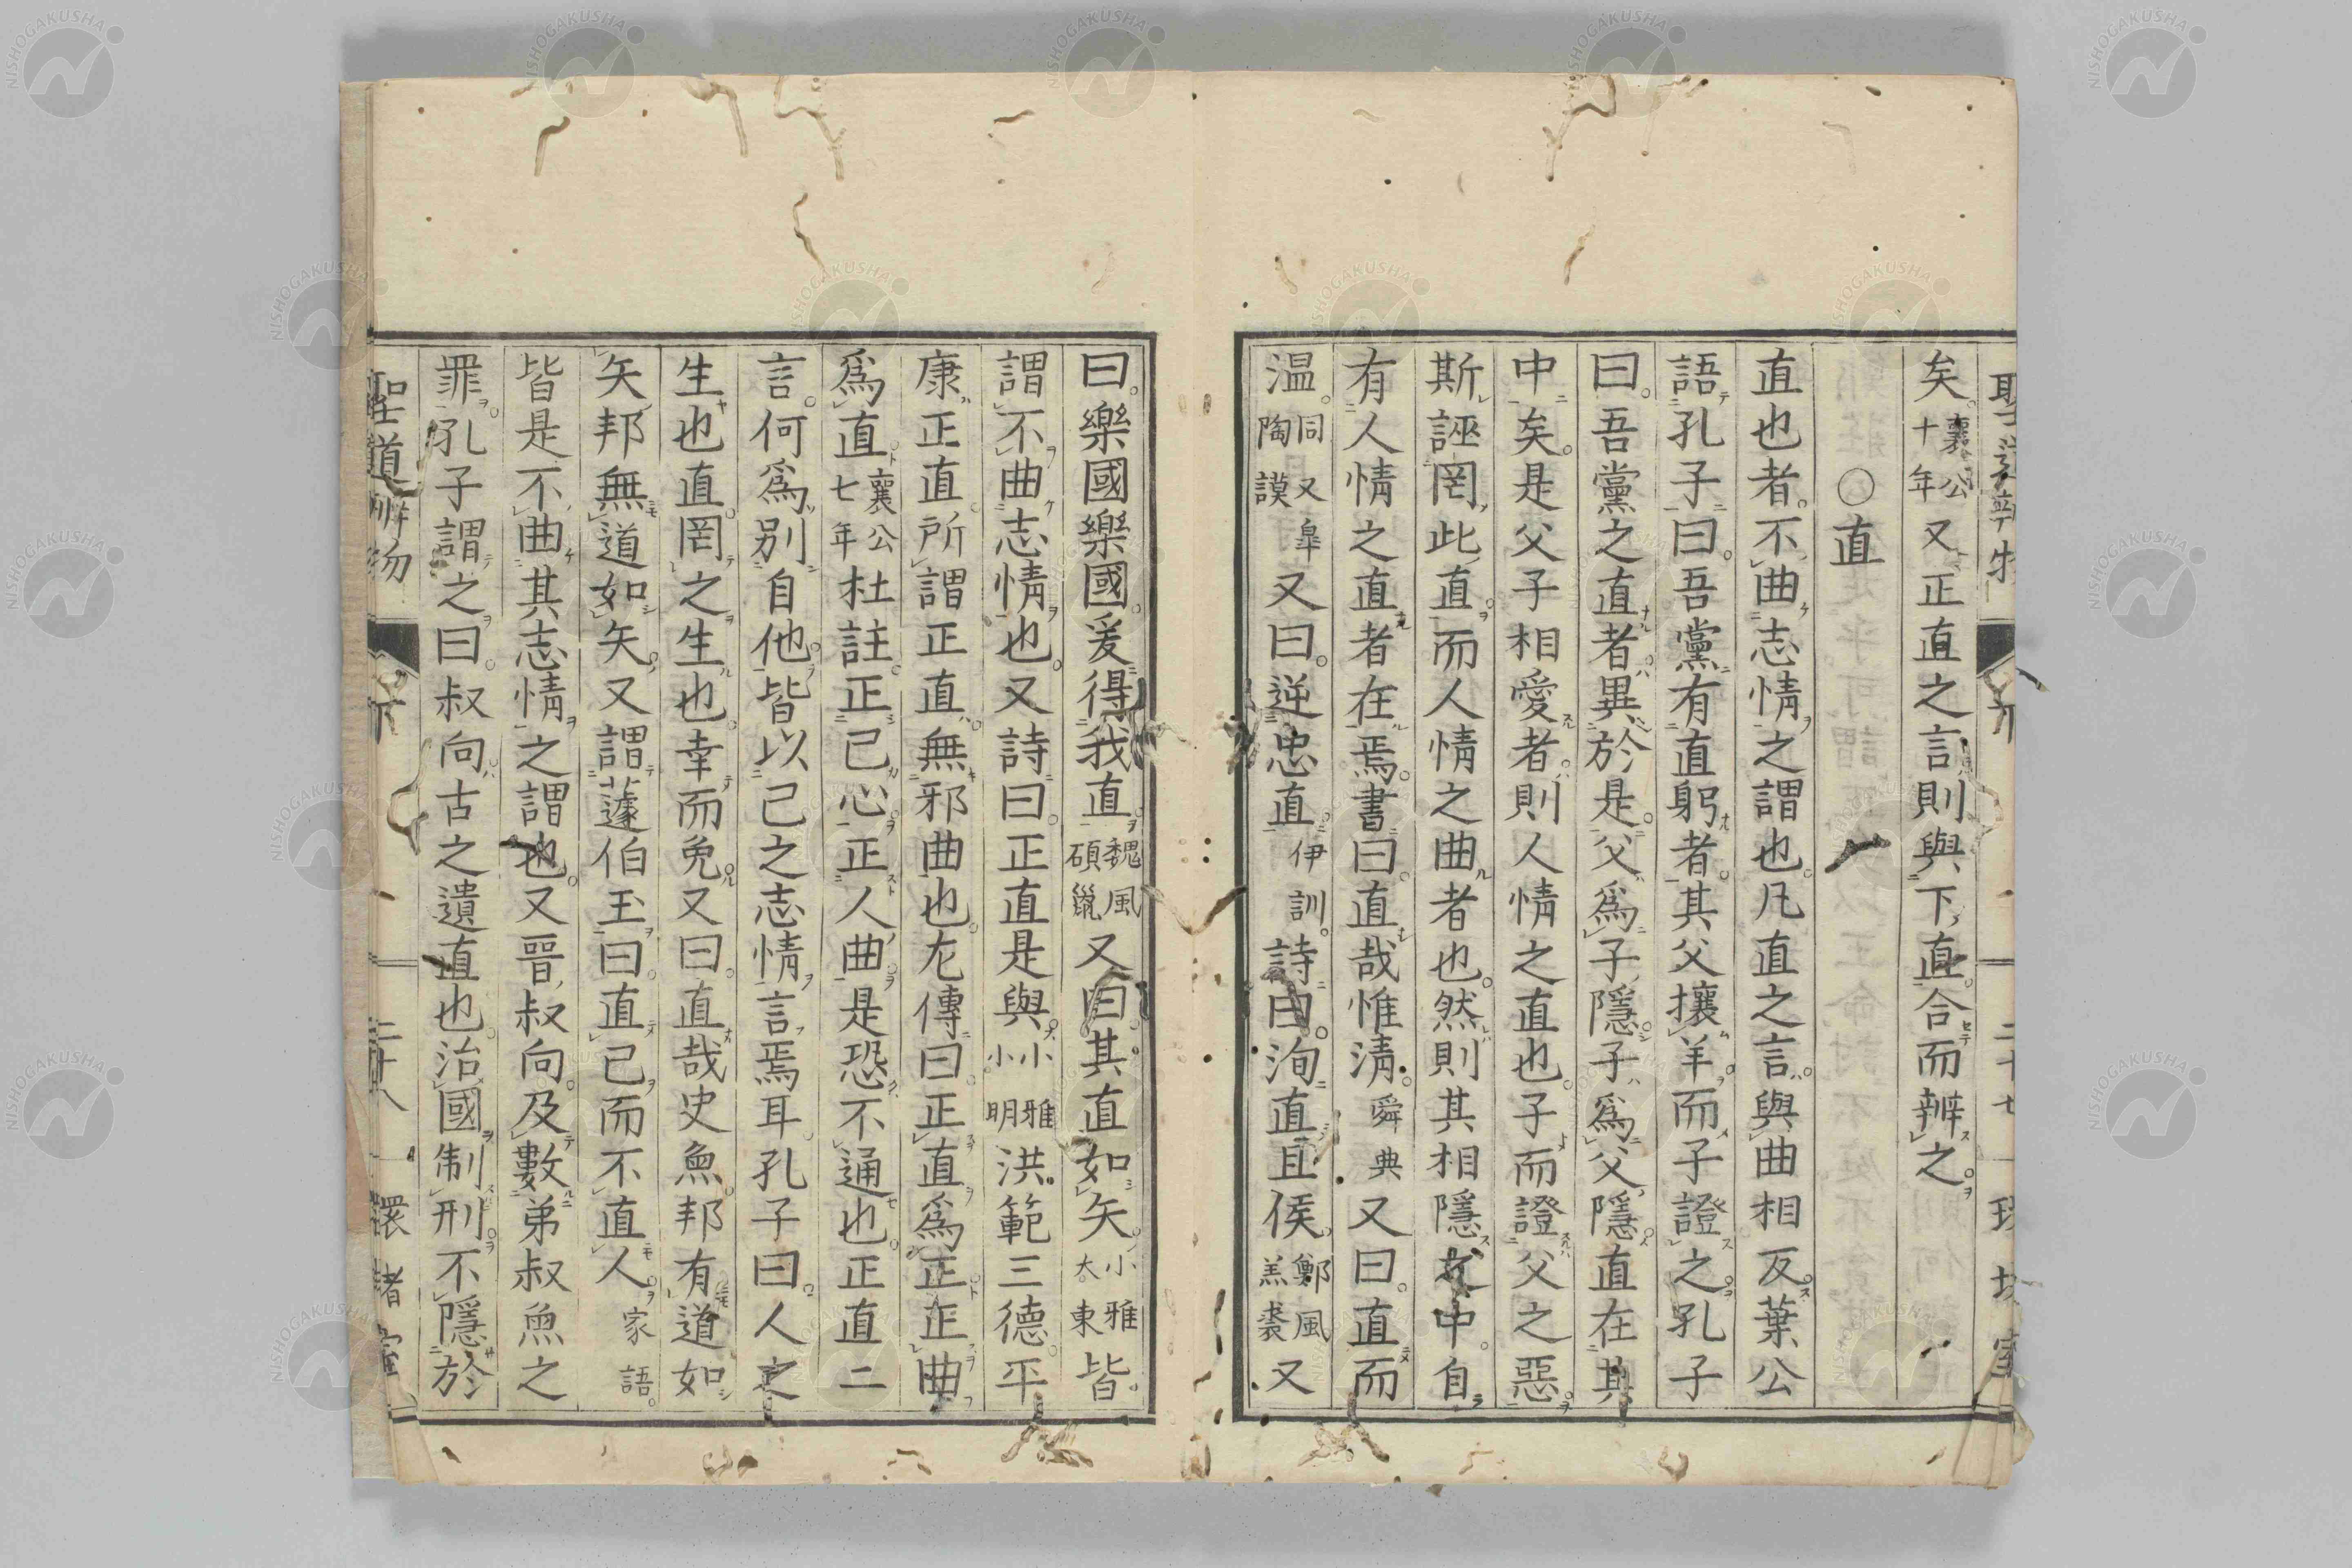 矣。襄公十年又正直之言則與下直合而辨之。
○直
直也者。不曲志情之謂也。凡直之言與曲相反葉公
語孔子曰。吾黨有直躬者。其父攘羊而子證之孔子
曰。吾黨之直者異於是。父爲子隱子爲父隱直在其
中矣。是父子相愛者則人情之直也。子而證父之惡
斯誣罔此直而人情之曲者也。然則其相隱之中。自
有人情之直者在焉。書曰。直哉惟淸。舜典又曰。直而
温。同又皐陶謨又曰。逆忠直伊訓。詩曰。洵直且侯。鄭風羔裘又
曰。樂國樂國。爰得我直魏風碩鼠又曰。其直如矢。小雅大東皆
謂不曲志情也。又詩曰。正直是與。小雅小明洪範三德。平
康正直。所謂正直。無邪曲也。左傳曰。正直爲正正曲
爲直襄公七年杜註。正己心正人曲。是恐不通也。正直二
言。何爲別。自他皆以己之志情言焉耳。孔子曰。人之
生也直。罔之生也。幸而免。又曰。直哉史魚。邦有道如
矢邦無道如矢。又謂蘧伯玉曰。直己而不直人。家語。
皆是不曲其志情之謂也。又晉叔向。及數弟叔魚之
罪。孔子謂之曰。叔向古之遺直也。治國制刑。不隱於
聖道辨物
二十八
環堵室